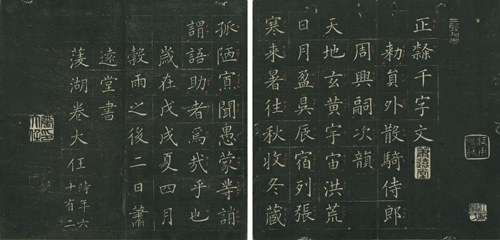 正隸千字文
勅員外散騎侍郎
周興嗣次韻
天地玄黃宇宙洪荒
日月盈昃辰宿列張
寒来暑往秋收冬藏
孤陋寡聞愚蒙等誚
謂語助者焉哉乎也
歲在戊戌夏四月
穀雨之後二日蕭
遠堂書
菱湖卷大任時年六十有二